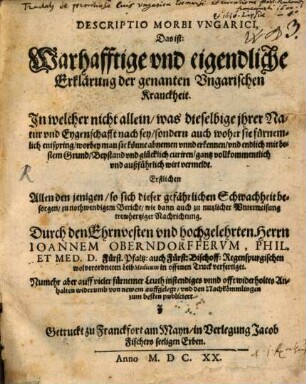 DESCRIPTIO MORBI VNGARICI,
Das ist:
Warhafftige vnd eigendliche
Erklärung der genanten Vngarischen
Kranckheit.
In welcher nicht allein/ was dieselbige jhrer Na-
tur vnd Eygenschafft nach sey/ sondern auch woher sie fürnem-
lich entspring/ worbey man sie könne abnemen vnnd erkennen/ vnd endlich mit be-
stem Grund/ Beystand vnd glücklich curiren/ gantz vollkommentlich
vnd außführlich wirt vermeldt.
Erstlichen
Allen den jenigen/ so sich dieser gefährlichen Schwachheit be-
sorgen/ zu nothwendigem Bericht/ wie dann auch zu nutzlicher
trewhertziger Nachrichtung.
Durch den Ehrnvesten vnd hochgelehrten Herrn
IOANNEM OBERNDORFFERVM, PHIL.
ET MED. D. Fürst. Pfaltz: auch Fürst: Bischoff: Regenspurgischen
wolverordneten Leib Medicum in offenen Truck verfertiget.
Nunmehr aber auff vieler fürnemer Leuth instendiges vnnd offt widerholtes An-
halten widerumb von newem auffgelegt/ vnd den Nachkömmlingen
zum besten publiciert.
Getruckt zu Franckfort am Mayn/ in Verlegung Jacob
Fischers seeligen Erben.
Anno M. D C. XX.